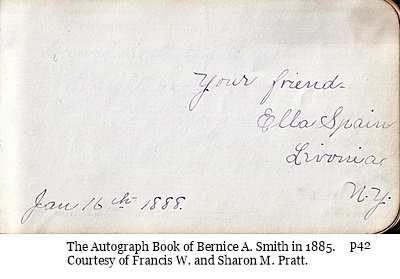 Your friend-
Ella Spain
Livonia
N.Y.
Jan 16th 1888.
The Autograph Book of Bernice A. Smith in 1885. p42
Courtesy of Francis W. and Sharon M. Pratt.